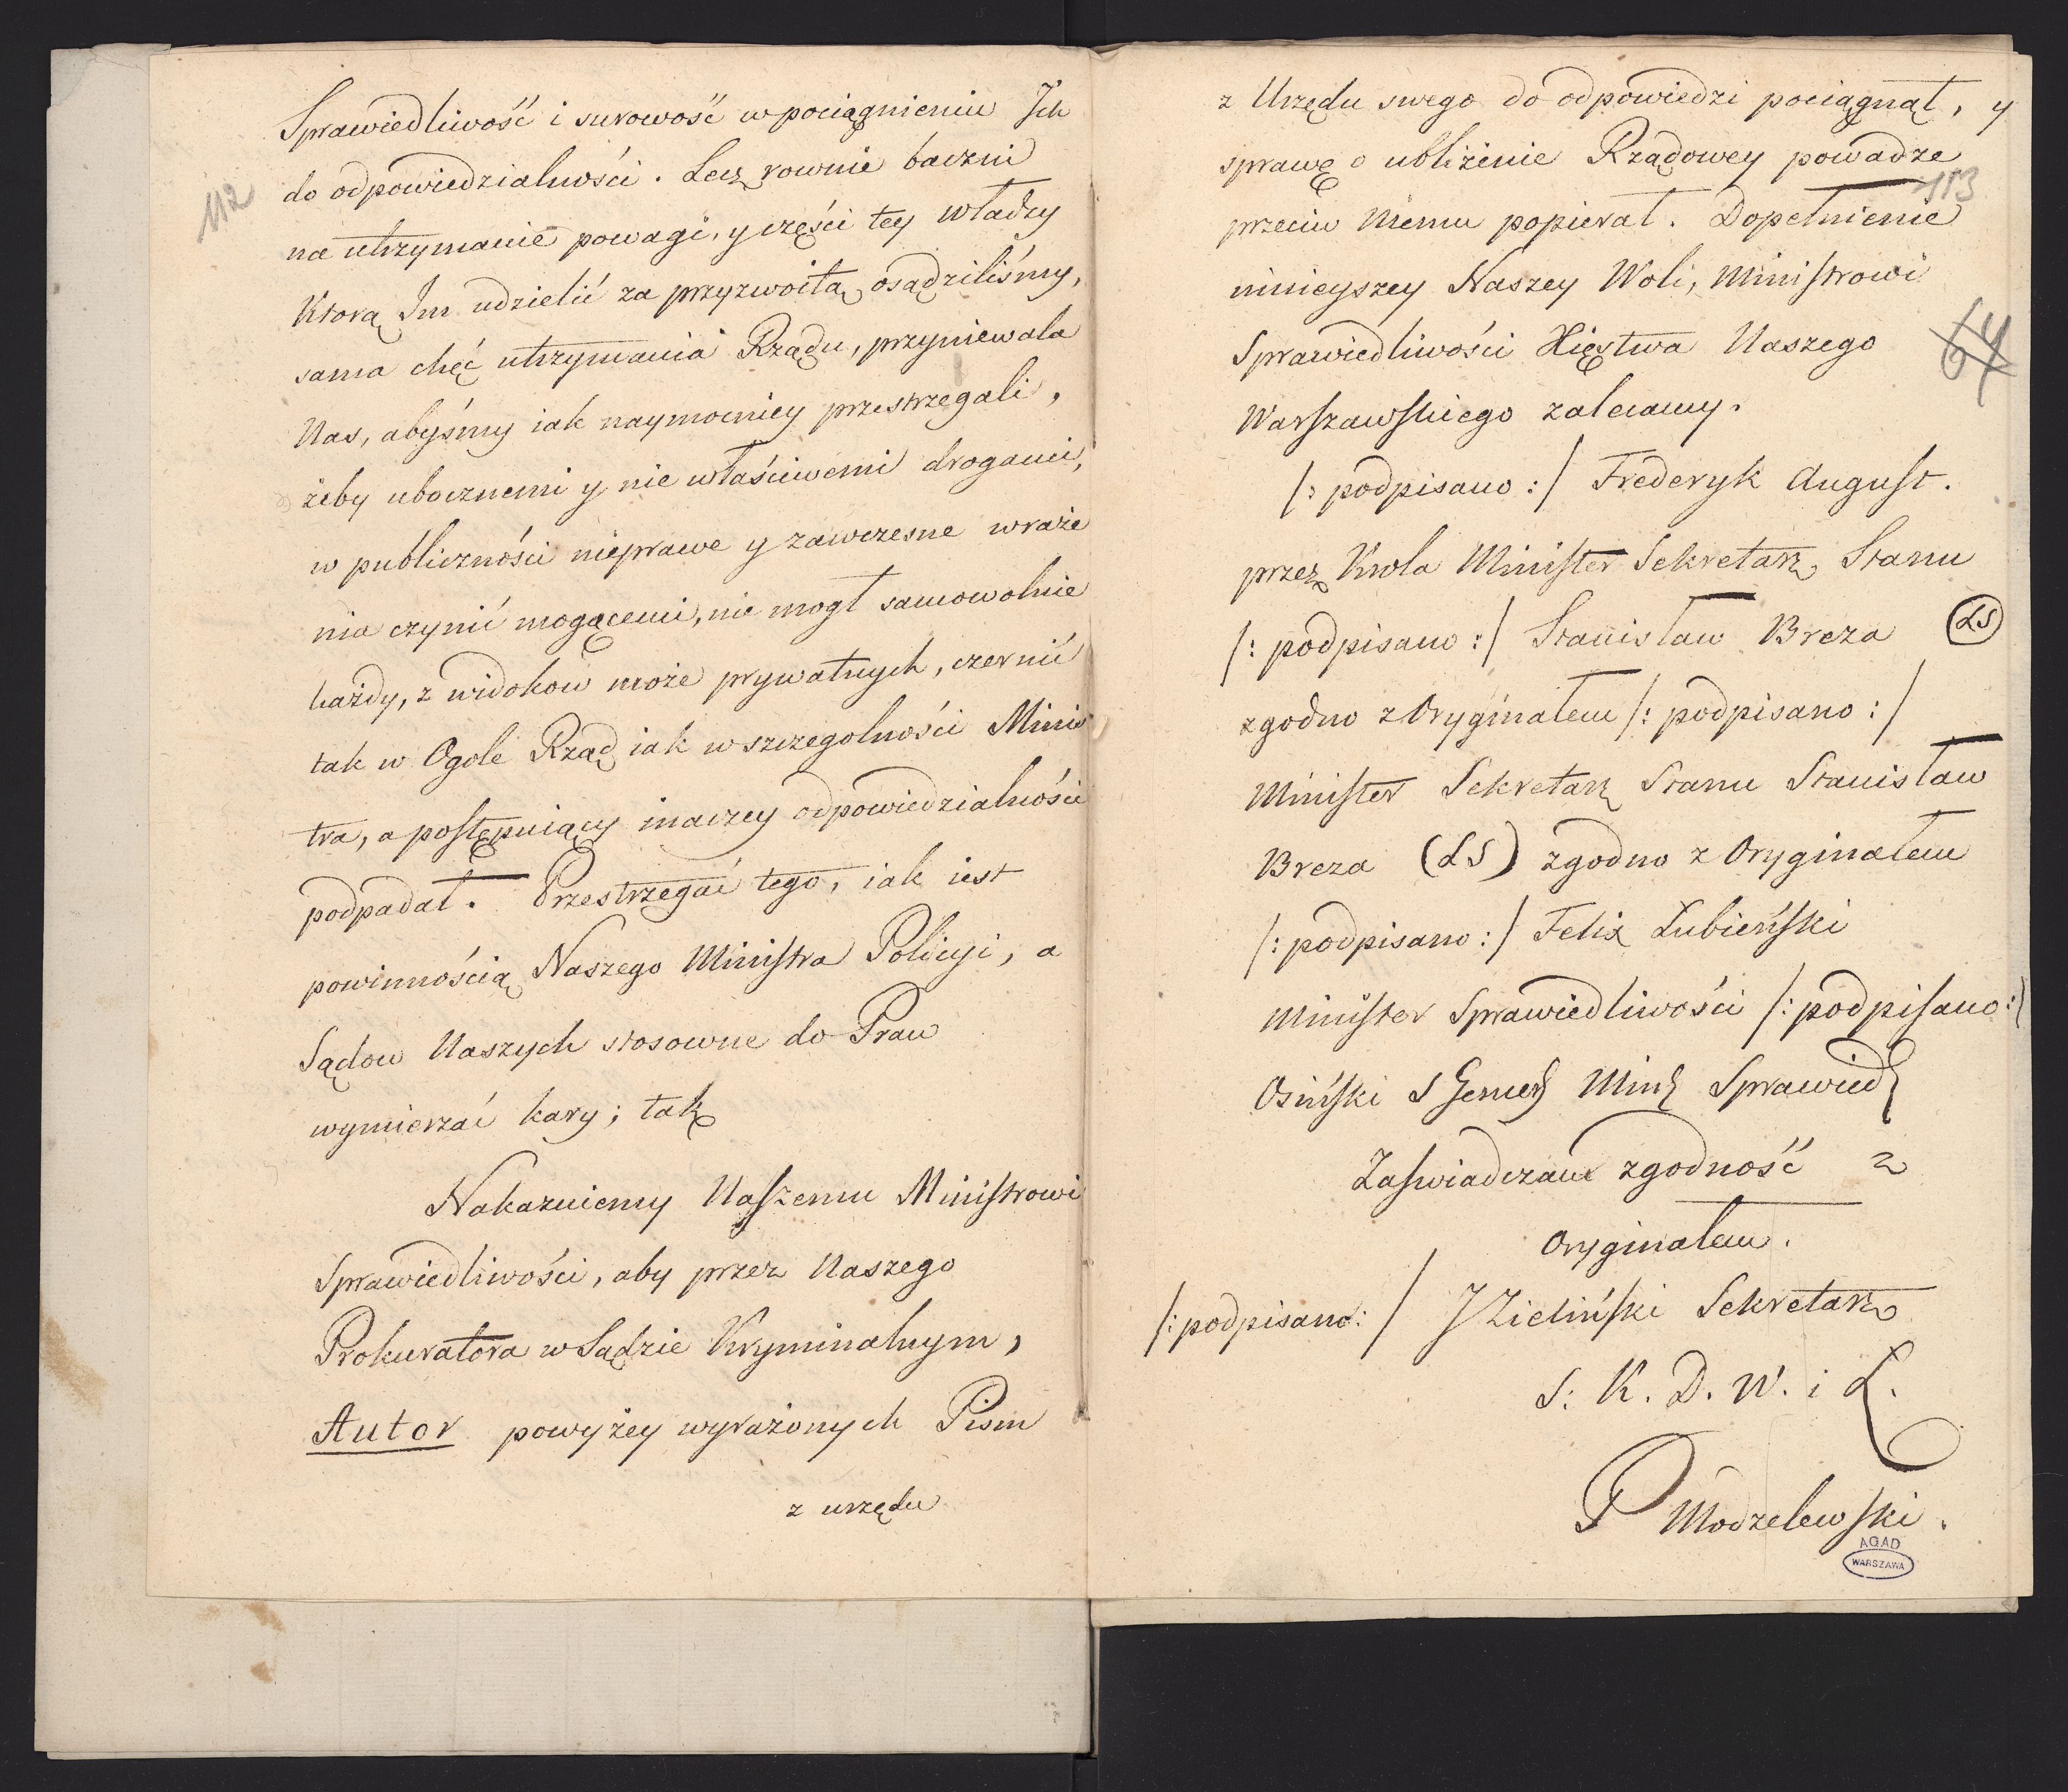 112
Sprawiedliwość i surowość w pociągnieniu Ich
do odpowiedzialności. Lecz rownie baczni
na utrzymanie powagi, y części tey władzy
Ktorą Im udzielić za przyzwoitą osądziliśmy,
sama chęć utrzymania Rządu, przyniewala
Nas, abyśmy iak naymocniey przestrzegali,
żeby ubocznemi y nie właściwemi drogami,
w publiczności nieprawe y zawczesne wraże
nia czynić mogącemi, nie mogł samowolnie
każdy, z widokow może prywatnych, czernić
tak w Ogole Rząd iak w szczegolności Minis
tra, a postępuiący inaczey odpowiedzialności
podpadał. Przestrzegać tego, iak iest
powinnością Naszego Ministra Policyi, a
Sądow Naszych stosowne do Praw
wymierzać kary; tak
Nakazuiemy Naszemu Ministrowi
Sprawiedliwości, aby przez Naszego
Prokuratora w Sądzie Kryminalnym,
Autor powyżey wyrażonych Pism
z urzędu
z Urzędu swego do odpowiedzi pociągnął, y
sprawę o ubliżenie Rządowey powadze
113
przeciw Niemu popierał. Dopełnienie
ninieyszey Naszey Woli, Ministrowi
Sprawiedliwości Xięstwa Naszego
64
Warszawskiego zalecamy.
/: podpisano :/ Frederyk August.
przez Krola Minister Sekretarz Stanu
/: podpisano :/ Stanisław Breza (LS)
zgodno z Oryginałem /: podpisano :/
Minister Sekretarz Stanu Stanisław
Breza (LS) zgodno z Oryginałem
/: podpisano :/ Felix Łubieński
Minister Sprawiedliwości /: podpisano :/
Osiński S Gener Min Sprawied
Zaswiadczam zgodność z
Oryginałem.
/: podpisano: / J Zieliński Sekretarz
S: K. D. W. i Ł.
P Modzelewski.
AGAD
WARSZAWA